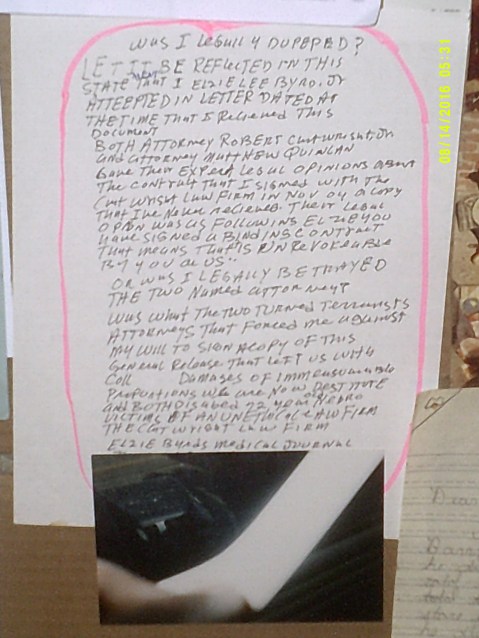 WAS I LEGULLY DUPEPED?
LET IT BE REFLECTED IN THIS
STATEMENT THAT I ELZIE LEE BYRD, JR
ATTEPTED IN LETTER DATED AT
THE TIME THAT I RELIEVED THIS
DOCUMENT
BOTH ATTORNEY ROBERT CUTWRIGHT, JR.
and ATTORNEY MATTHEW QUINLAN
GAVE THEIR EXPERT LEGUL OPINIONS ABOUT
THE CONTRUCT THAT I SIGNED WITH THE
CUTWRIGHT LAW FIRM IN NOV 04 A COPY
THAT IVE NEVER RELIEVED THEIR LEGUL
OPION WAS AS FOLLOWING ELZIE YOU
HAVE SIGNED A BINDING CONTRACT
THAT MEANS THAT IS UNREVOKEABLE
BY YOU OR US"
OR WAS I LEGALLY BETRAYED
THE TWO NAMED ATTORNEY?
WAS WHAT THE TWO TURNED TERRURISTS
ATTORNEYS THAT FORCED ME AGAINST
MY WILL TO SIGN A COPY OF THIS
GENERAL RELEASE THAT LEFT US WITH
COLL DAMAGES OF IMMENSURABLE
PROPUTIONS WE ARE NOW DESTITUTE
and BOTH DISABED 72 YEAR OLD NEGRO
VICTIMS OF AN UNETHICAL LAW FIRM
THE CUTWRIGHT LAW FIRM
ELZIE BYRDS MEDICAL JOURNAL
08/14/2018 05:31
Dear